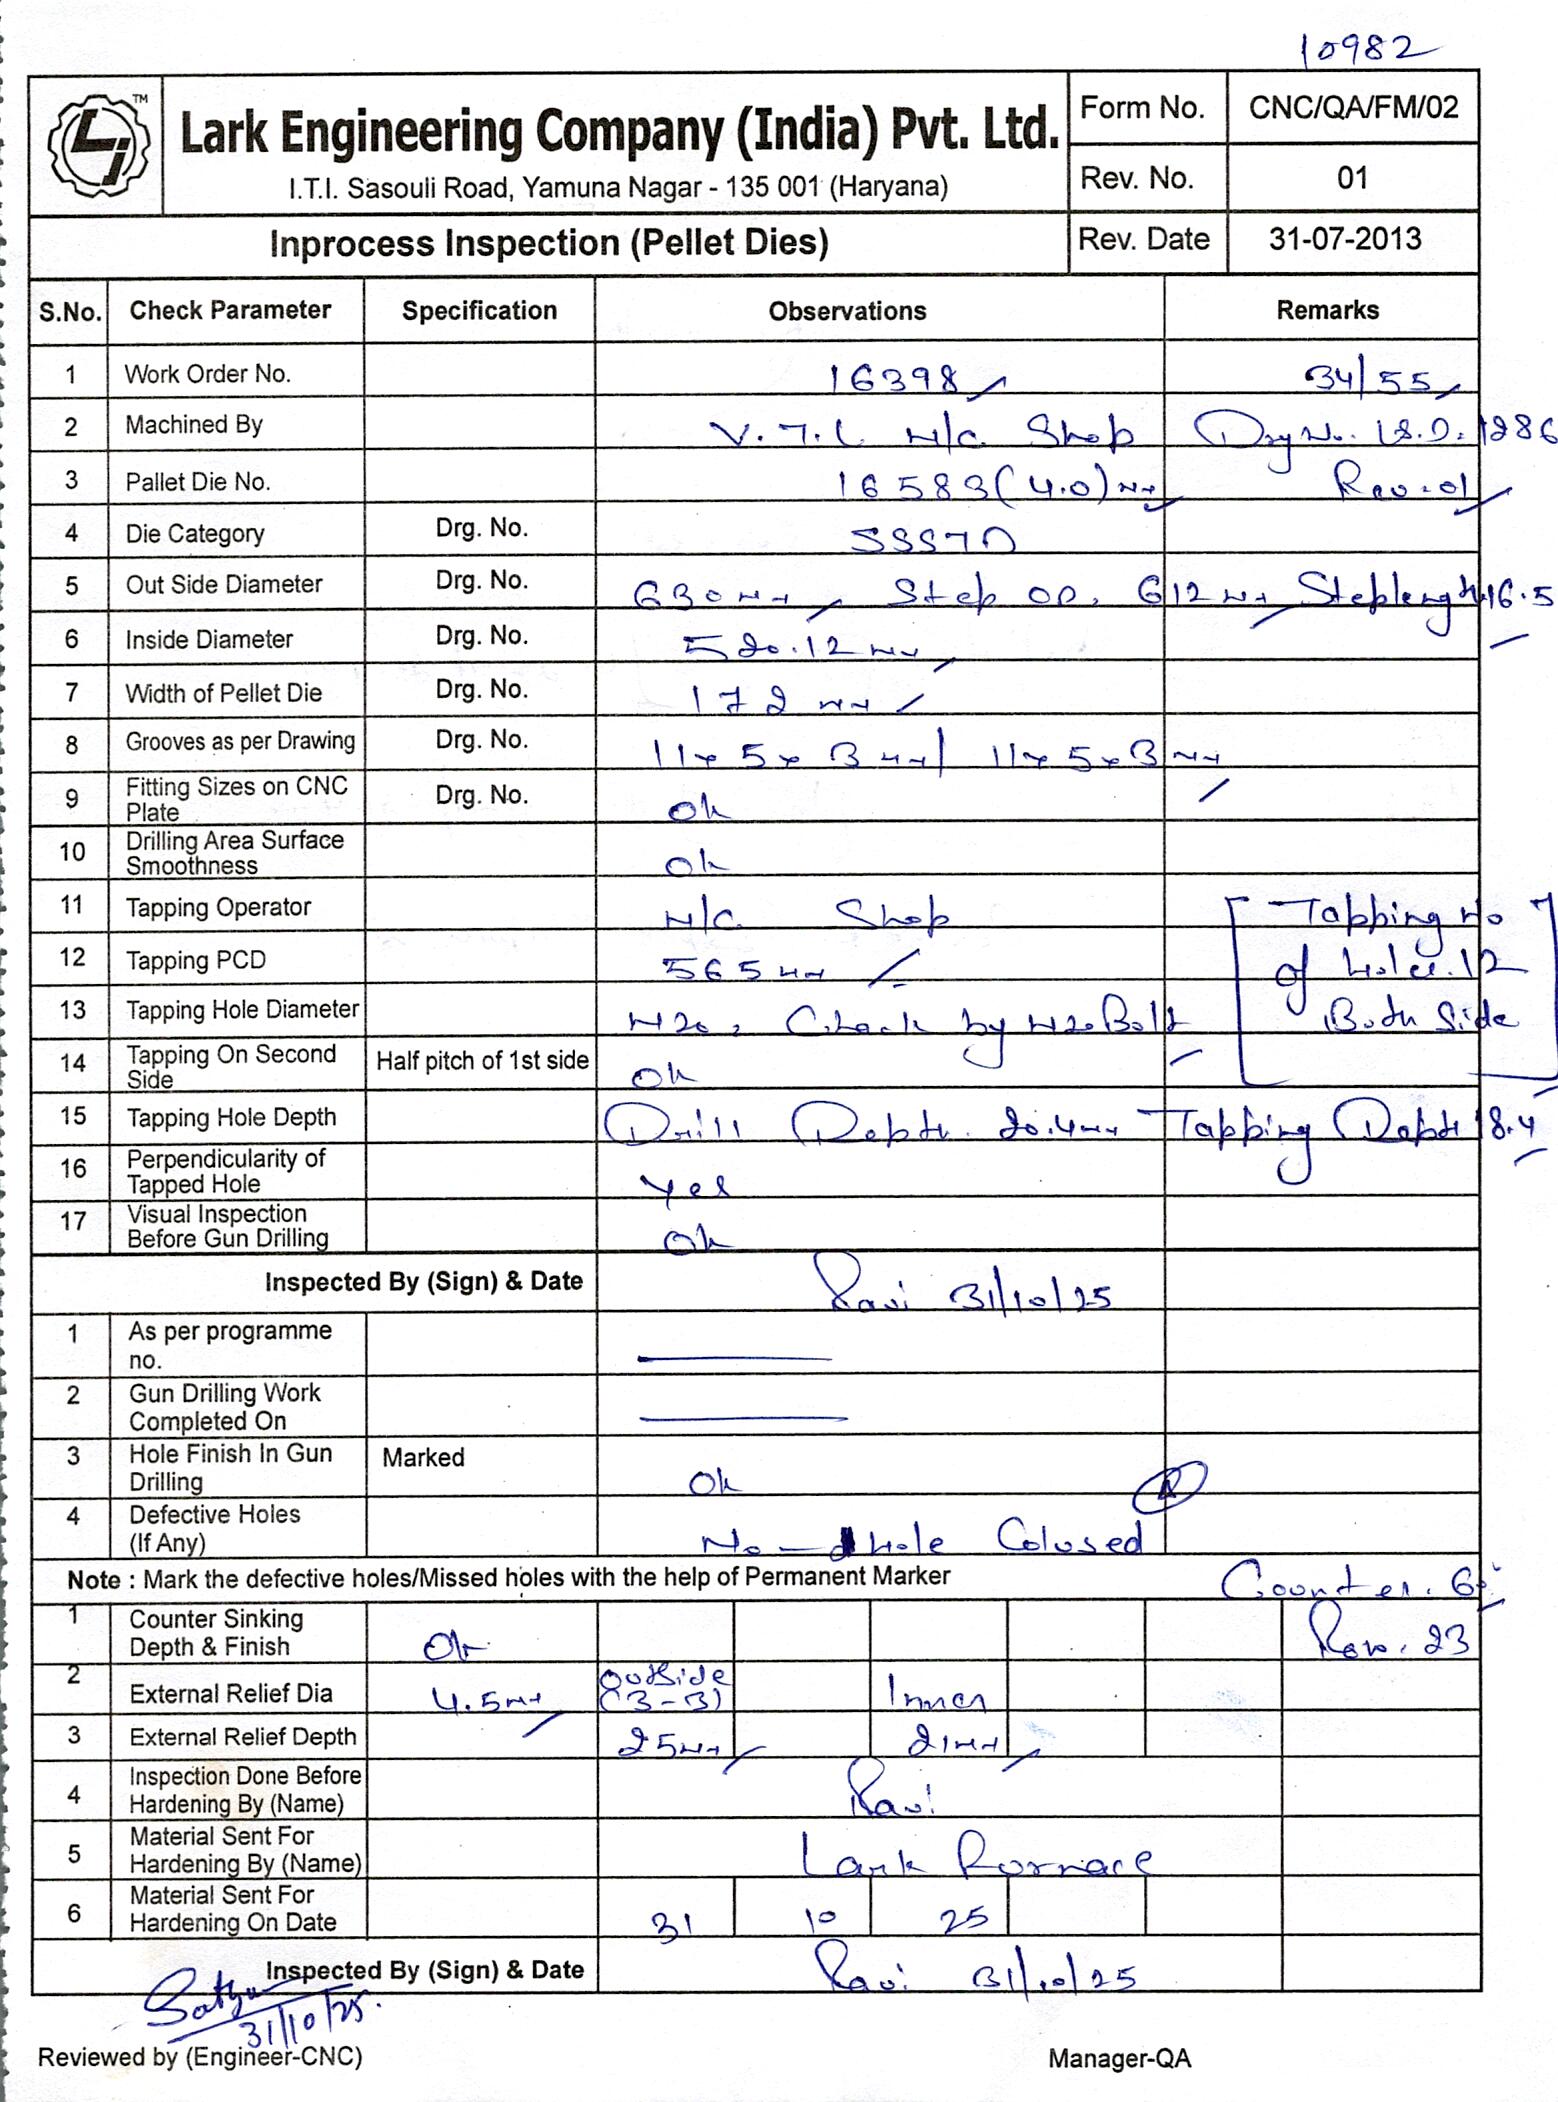 10982
LJ TM
Lark Engineering Company (India) Pvt. Ltd.
I.T.I. Sasouli Road, Yamuna Nagar - 135 001 (Haryana)
Form No. CNC/QA/FM/02
Rev. No. 01
Inprocess Inspection (Pellet Dies) Rev. Date 31-07-2013
S.No. Check Parameter Specification Observations Remarks
1 Work Order No. 16398 34/55
2 Machined By V.T.L M/C Shop Drg No. 1286
3 Pallet Die No. 16583 (4.0) mm Rev. 01
4 Die Category Drg. No.
5 Out Side Diameter Drg. No. 630 mm, Step OD. 612 mm Step length 16.5
6 Inside Diameter Drg. No. 520.12 mm
7 Width of Pellet Die Drg. No. 172 mm
8 Grooves as per Drawing Drg. No. 11x5x3 mm/ 11x5x3 mm
9 Fitting Sizes on CNC Plate Drg. No. Ok
10 Drilling Area Surface Smoothness Ok
11 Tapping Operator M/C Shop [Tapping No
12 Tapping PCD 565 mm of holes. 12
13 Tapping Hole Diameter M20, Check by M20 Bolt Both Side]
14 Tapping On Second Side Half pitch of 1st side Ok
15 Tapping Hole Depth Drill Depth 20.4mm Tapping Depth 18.4
16 Perpendicularity of Tapped Hole Yes
17 Visual Inspection Before Gun Drilling Ok
Inspected By (Sign) & Date Ravi 31/10/25
1 As per programme no.
2 Gun Drilling Work Completed On
3 Hole Finish In Gun Drilling Marked Ok
4 Defective Holes (If Any) No - hole Colused
Note : Mark the defective holes/Missed holes with the help of Permanent Marker Counter. 60°
1 Counter Sinking Depth & Finish Ok 23
2 External Relief Dia 4.5mm Outside (3-3) Inner
3 External Relief Depth 25mm 21mm
4 Inspection Done Before Hardening By (Name) Ravi
5 Material Sent For Hardening By (Name) Lark Furnace
6 Material Sent For Hardening On Date 31 10 25
Inspected By (Sign) & Date Ravi 31/10/25
31/10/25.
Reviewed by (Engineer-CNC) Manager-QA